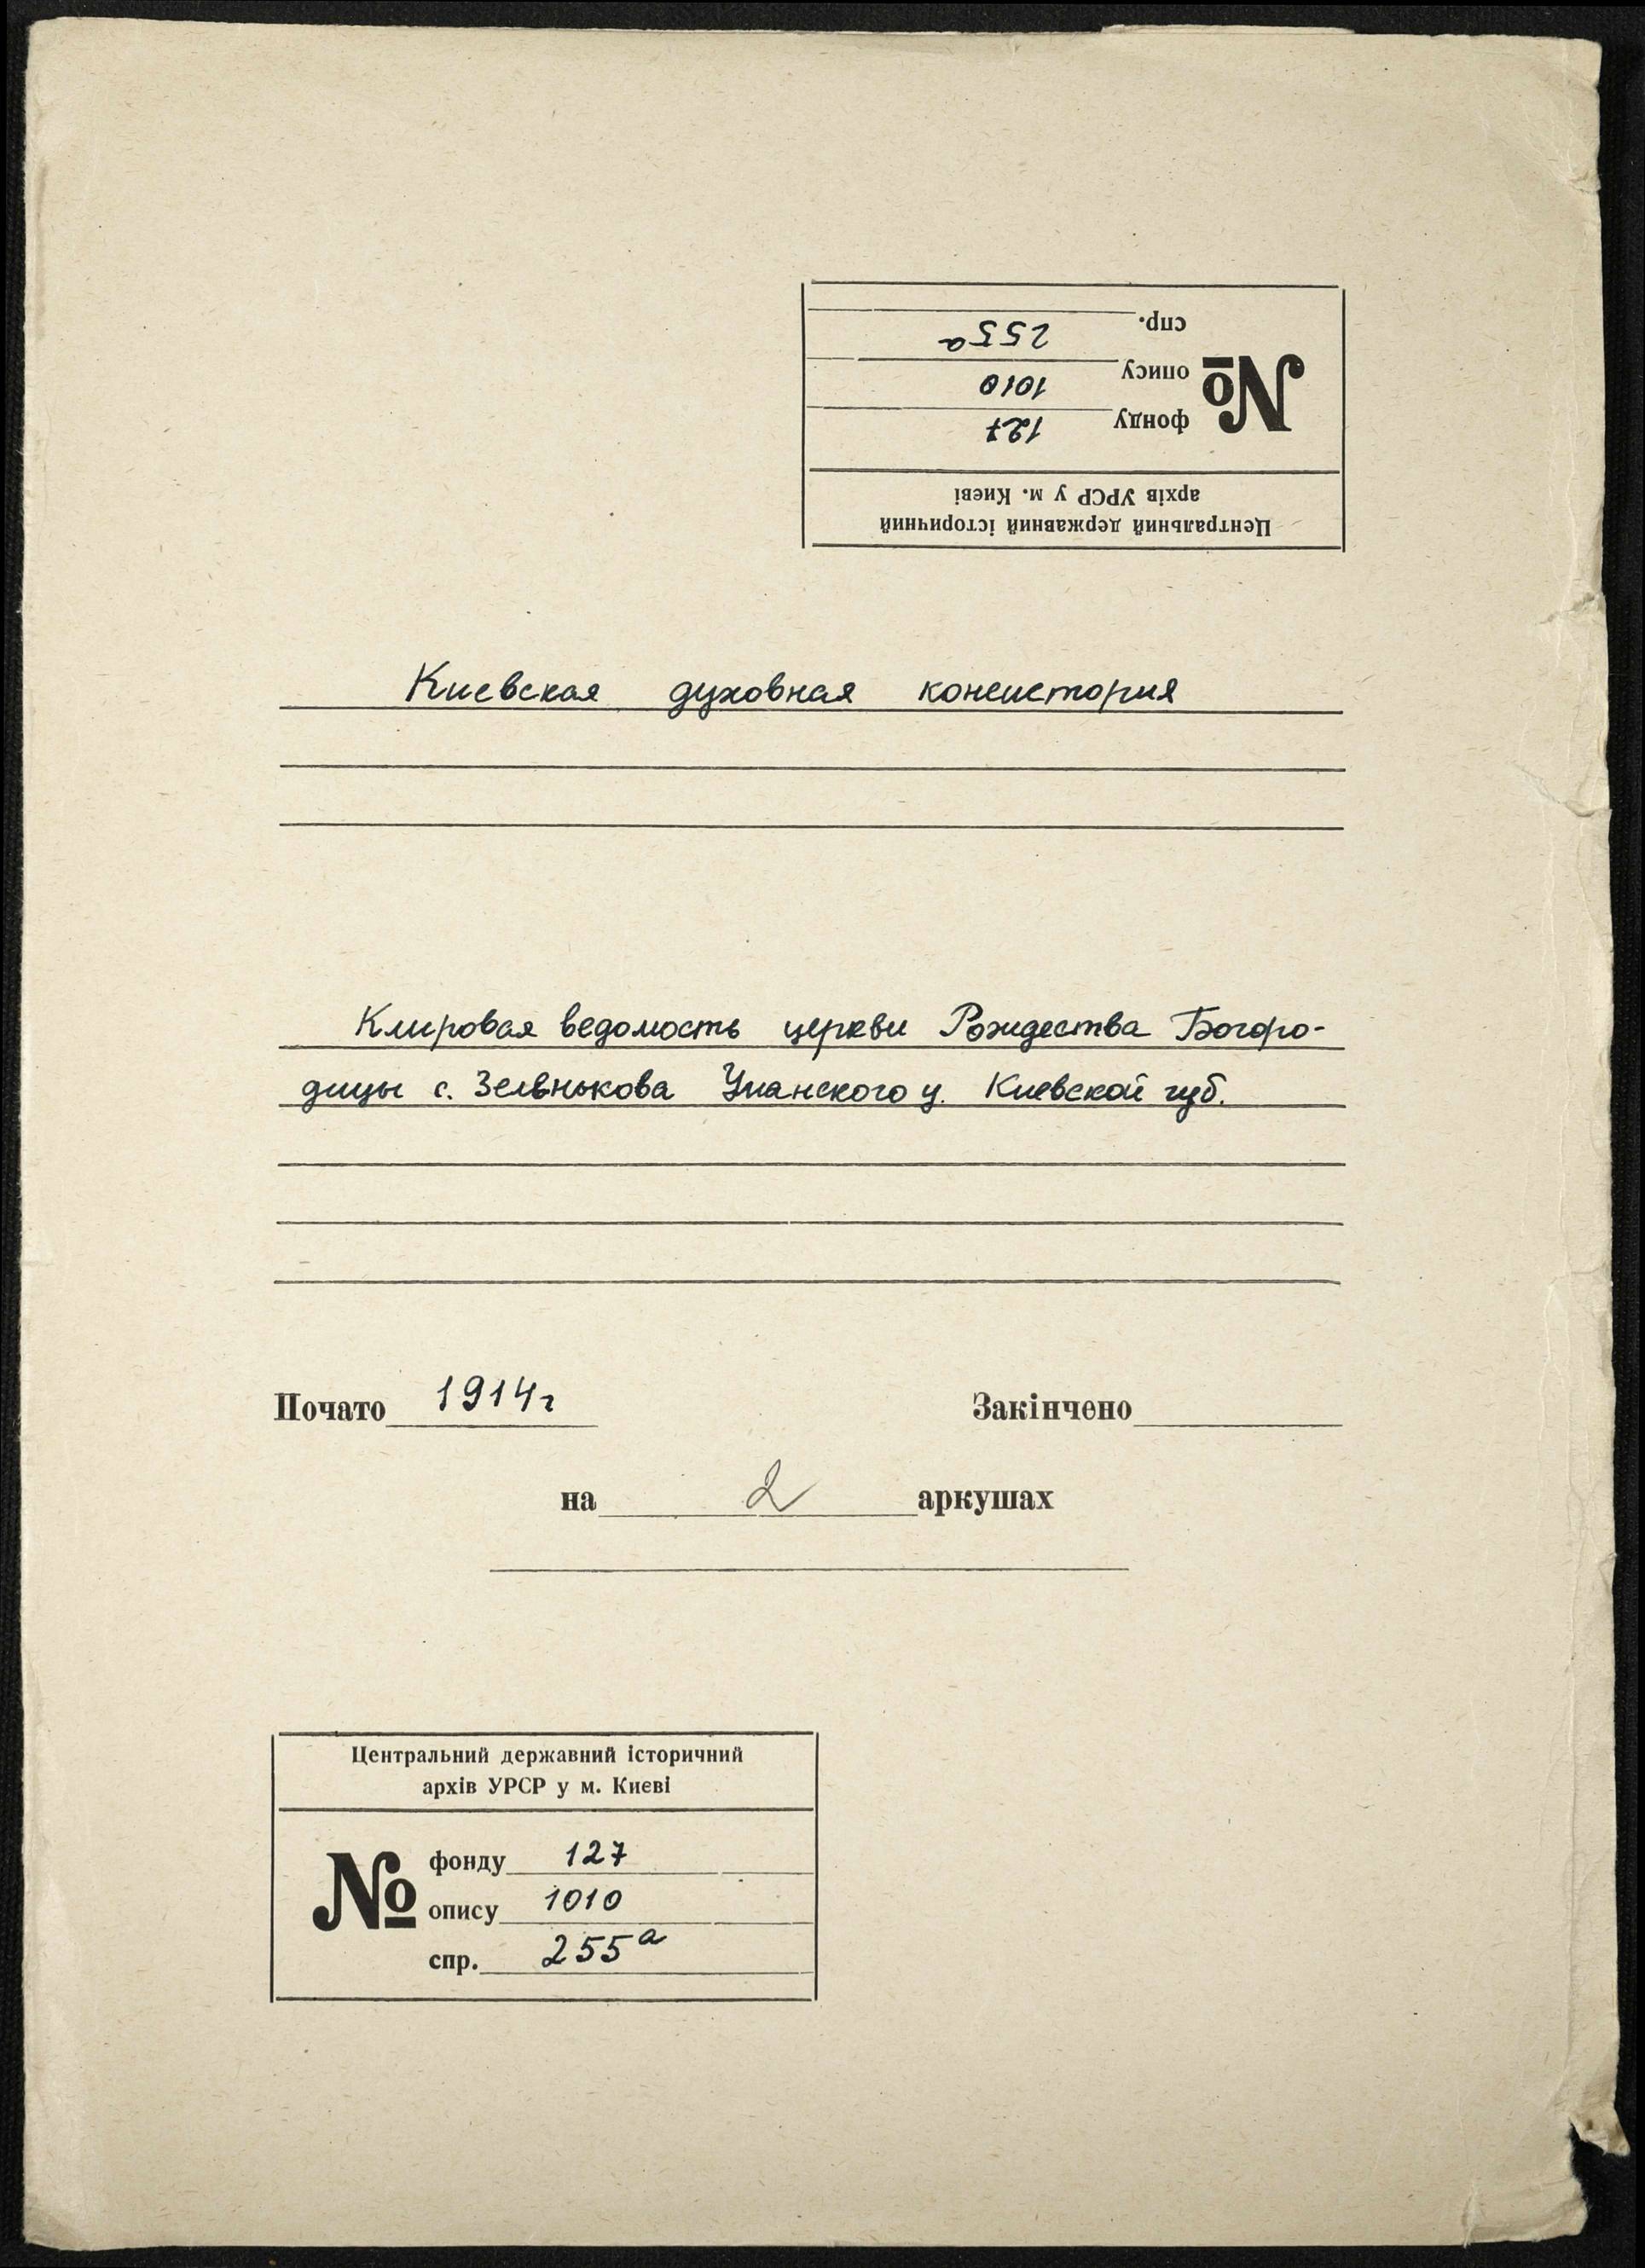 Центральний державний історичний
архів УРСР у м. Києві
№
фонду 127
опису 1010
спр. 255а
Киевская духовная консистория
Клировая ведомость церкви Рождества Богоро-
дицы с. Зеленькова Уманского у. Киевской губ.
Почато 1914г Закінчено
на 2 аркушах
Центральний державний історичний
архів УРСР у м. Києві
№
фонду 127
опису 1010
спр. 255а